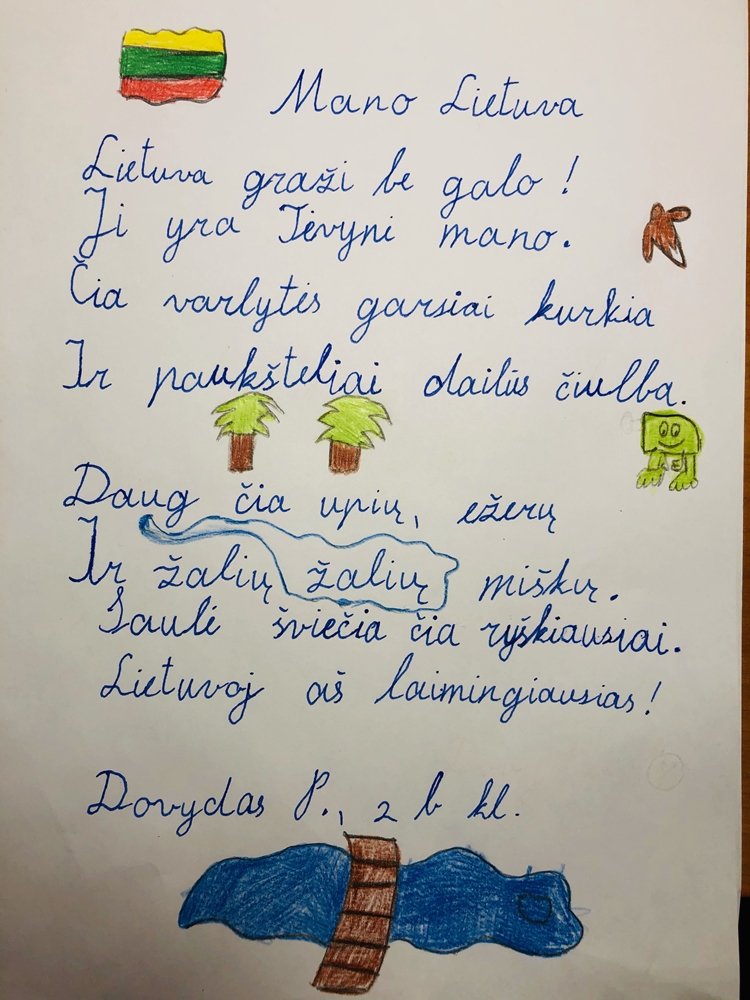 Mano Lietuva
Lietuva graži be galo!
Ji yra Tėvynė mano.
Čia varlytės garsiai kurkia
Ir paukšteliai dailiis čiulba.
Daug čia upių, ežerų
Ir žalių žalių miškų.
Saulė šviečia čia ryškiausiai.
Lietuvoj aš laimingiausias!
Dovydas P., 2 b kl.